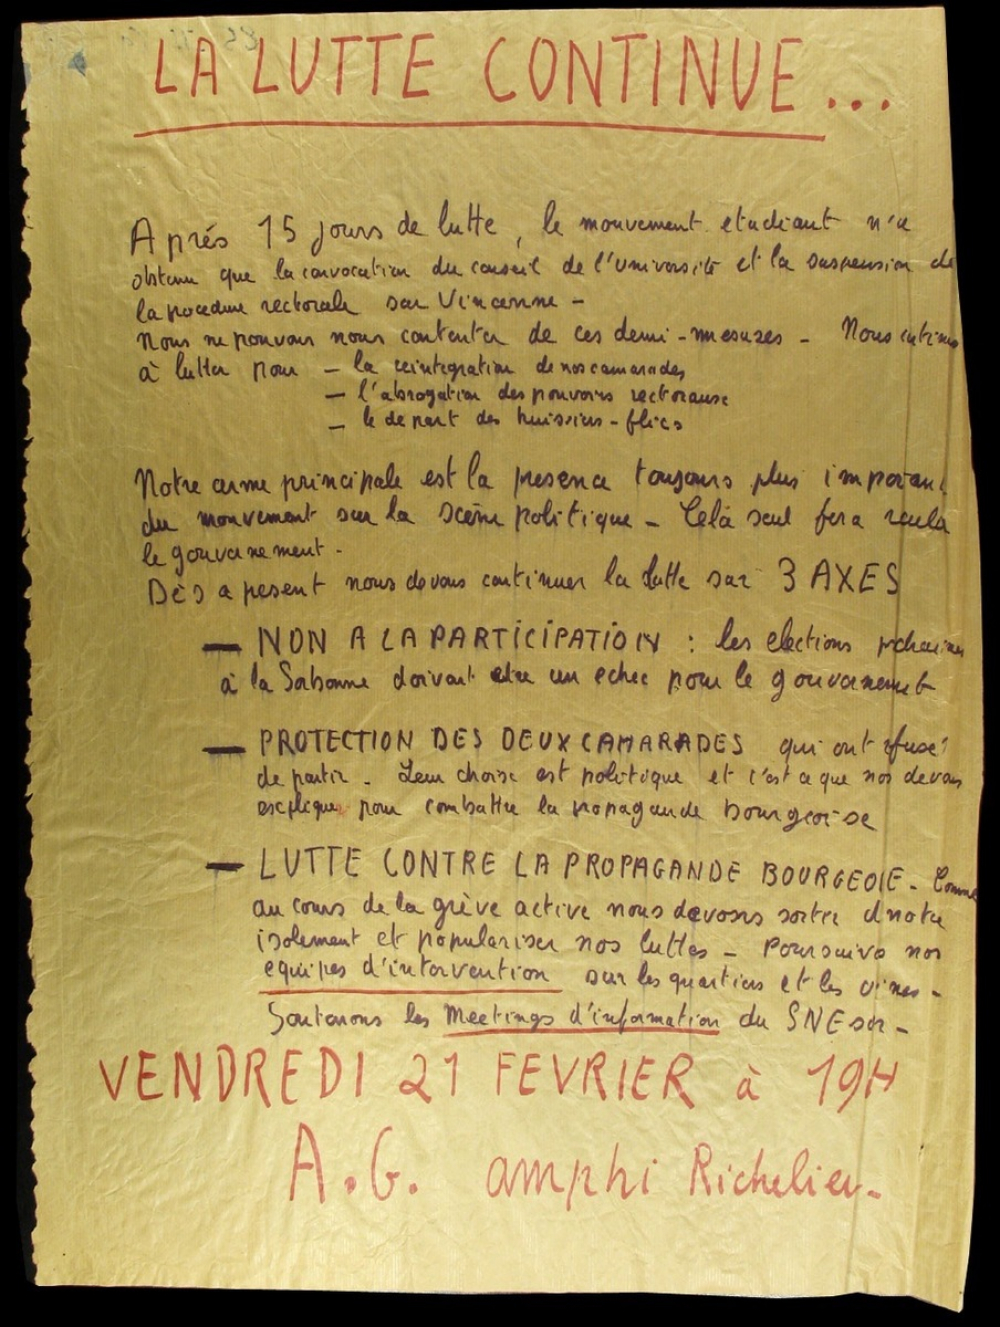 LA LUTTE CONTINUE...
Aprés 15 jours de lutte, le mouvement etudiant n'a
obtenu que la convocation du conseil de l'université et la suspension de
la pocedure rectorale sur Vincenne -
Nous ne pouvons nous contenter de ces demi-mesures - Nous
à lutter pour - la reintegration de nos camarades
- l'abrogation des pouvoirs rectoraux
- le depart des huissiers-flics
Notre arme principale est la presence toujours plus importante
du mouvement sur la scène politique - Celà seul fera recula
le gouvernement -
Dès a pesent nous devons continuer la lutte sur 3 AXES
- NON A LA PARTICIPATION : les elections
à la Sorbonne doivent etre un echec pour le gouvernement
- PROTECTION DES DEUX CAMARADES qui ont efusé
de partir - Leur choix est politique et c'est ce que nos devons
expliquer pour combattre la propagande bourgeoise
- LUTTE CONTRE LA PROPAGANDE BOURGEOIE - Comme
au cours de la grève active nous devons sortir d notre
isolement et populariser nos luttes - Poursuivo nos
equipes d'intervention sur les quartiers et les usines -
Soutenons les Meetings d'information du SNEsur -
VENDREDI 21 FEVRIER à 19H
A.G. amphi Richelieu -